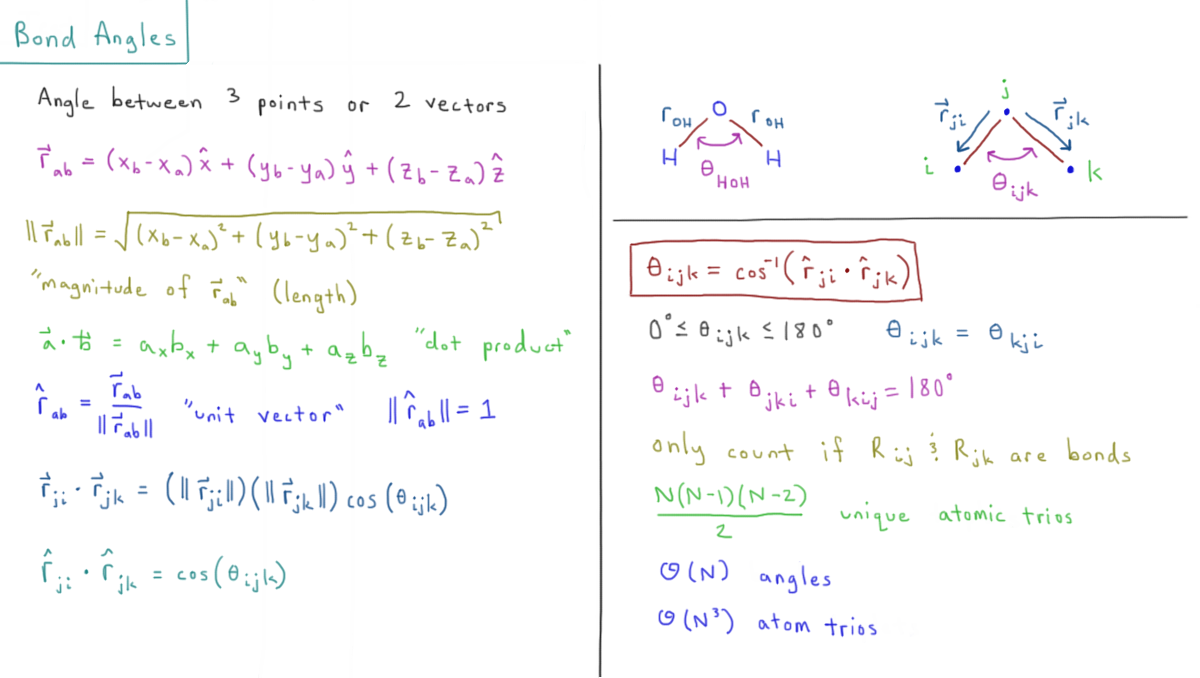 Bond Angles
Angle between 3 points or 2 vectors
r⃗ab = (xb-xa)x̂ + (yb-ya)ŷ + (zb-za)ẑ
||r⃗ab|| = √(xb-xa)² + (yb-ya)² + (zb-za)²
"magnitude of r⃗ab" (length)
a⃗·b⃗ = axbx + ayby + azbz "dot product"
r̂ab = r⃗ab / ||r⃗ab|| "unit vector" ||r̂ab|| = 1
r⃗ji · r⃗jk = (||r⃗ji||)(||r⃗jk||) cos(θijk)
r̂ji · r̂jk = cos(θijk)
rOH O rOH
H H
θHOH
j
r⃗ji r⃗jk
i k
θijk
θijk = cos⁻¹(r̂ji · r̂jk)
0° ≤ θijk ≤ 180° θijk = θkji
θijk + θjki + θkij = 180°
only count if Rij & Rjk are bonds
N(N-1)(N-2) / 2 unique atomic trios
O(N) angles
O(N³) atom trios